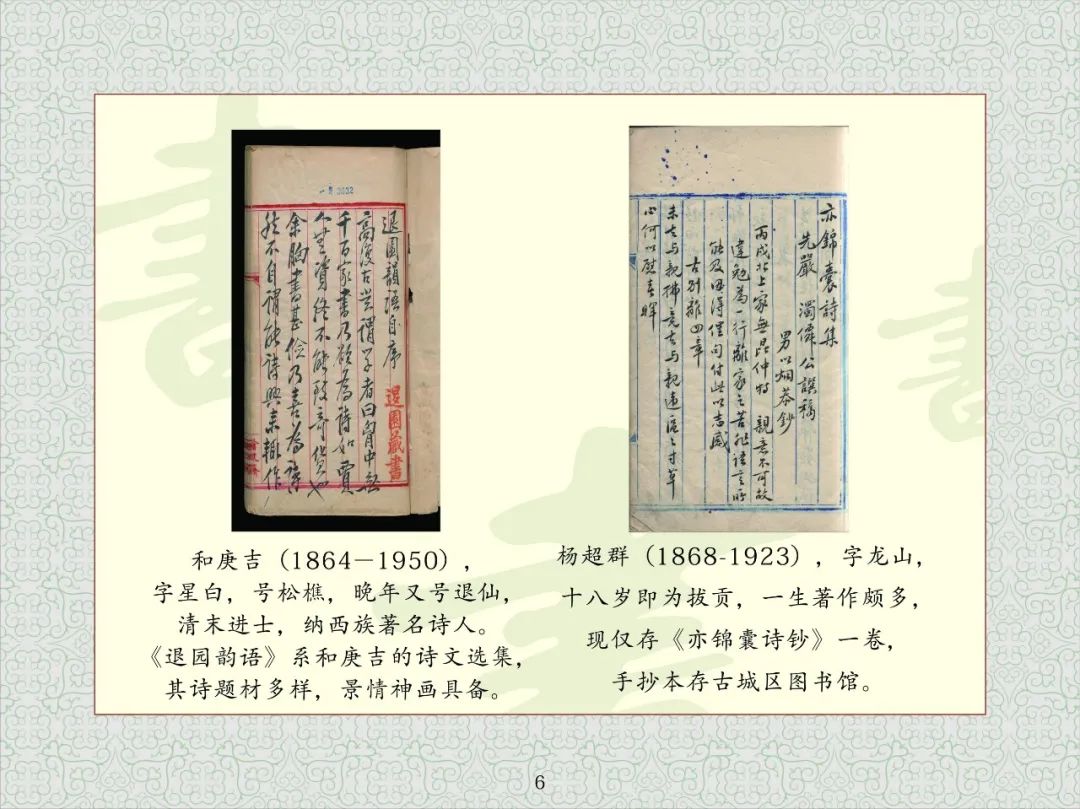 3032
退園韻語自序
退園藏書
高復古嘗謂學者曰胷中無
千百家書乃欲為詩如賈
人無資終不能致奇貨也
余胸書甚儉乃喜為詩
然不自謂能詩興來輒作
亦錦囊詩集
先嚴 濁儕公譔稿
男以烟恭鈔
丙戌北上家無昆仲特 親意不可故
違勉為一行離家之苦非語言所
能及因得俚句付此以志感
古別離四章
未去与親拂竟去与親違區々寸草
心何以慰春暉
和庚吉（1864－1950），
字星白，号松樵，晚年又号退仙，
清末进士，纳西族著名诗人。
《退园韵语》系和庚吉的诗文选集，
其诗题材多样，景情神画具备。
杨超群（1868-1923），字龙山，
十八岁即为拔贡，一生著作颇多，
现仅存《亦锦囊诗钞》一卷，
手抄本存古城区图书馆。
6